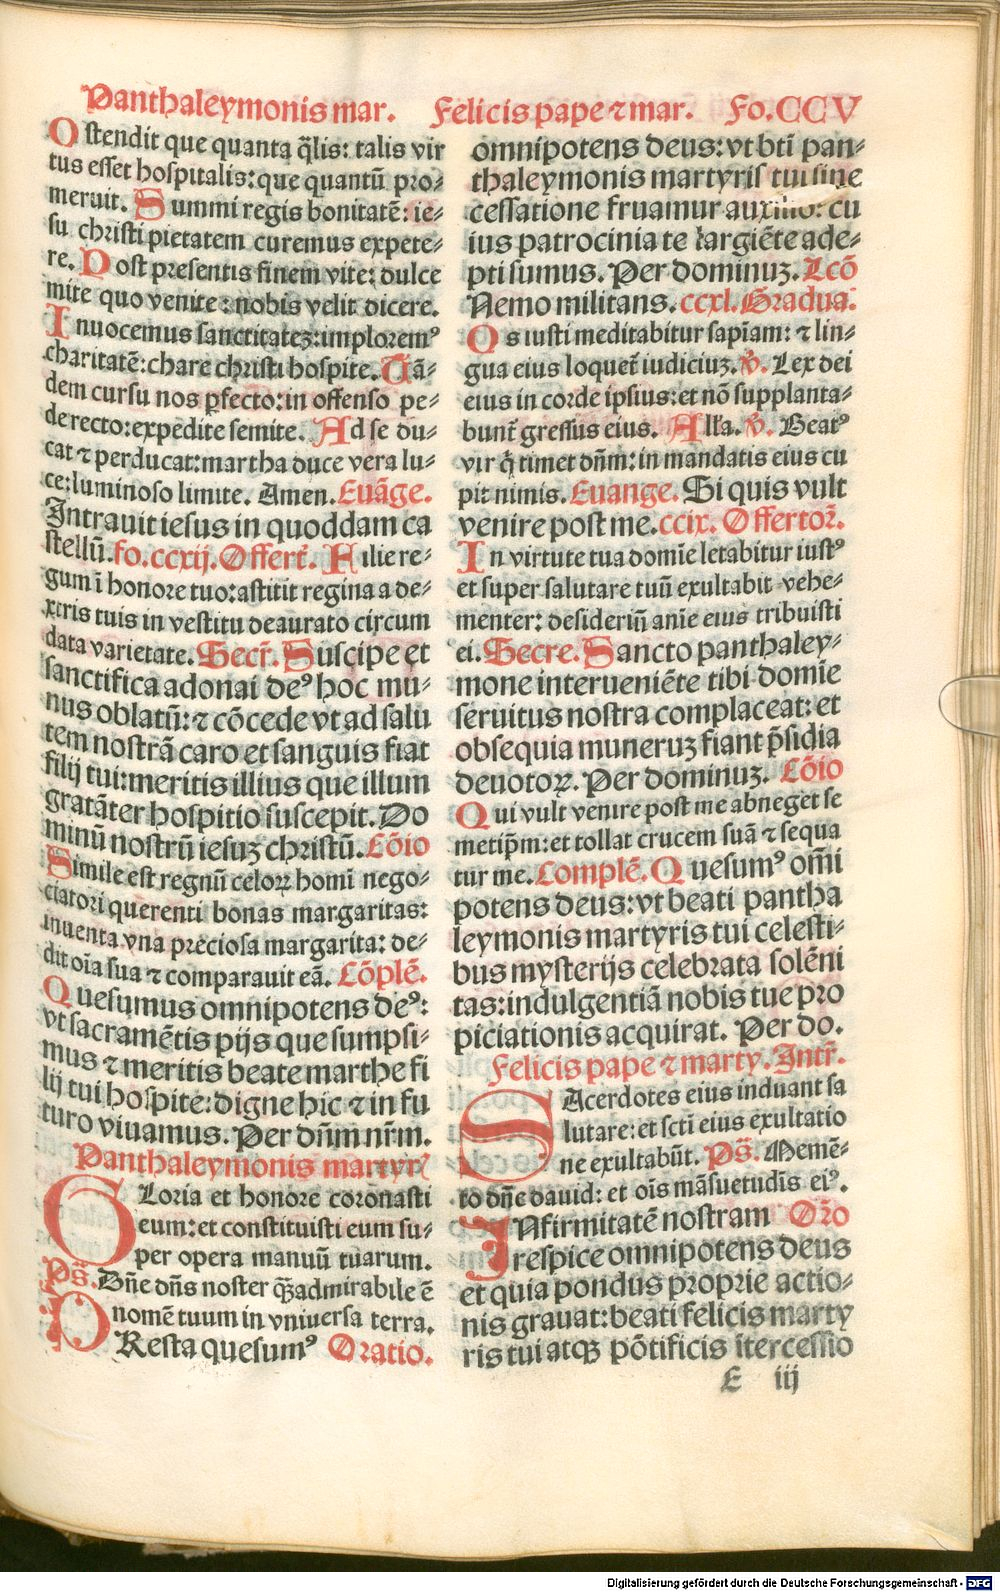 Panthaleymonis mar. Felicis pape ⁊ mar. Fo. CCV
Ostendit que quanta q̃lis: talis vir
tus esset hospitalis: que quantũ pro⸗
meruit. Summi regis bonitatẽ: ie⸗
su christi pietatem curemus expete⸗
re. Post presentis finem vite: dulce
mite quo venite: nobis velit dicere.
Inuocemus sanctitateꝫ: imploremꝰ
charitatẽ: chare christi hospite. Uã⸗
dem cursu nos ꝑfecto: in offenso pe⸗
de recto: expedite semite. Ad se du⸗
cat ⁊ perducat: martha duce vera lu⸗
ce: luminoso limite. Amen. Euãge.
Intrauit iesus in quoddam ca
stellũ. fo. ccxij. Offert̃. Filie re⸗
gum ĩ honore tuo: astitit regina a de⸗
xtris tuis in vestitu deaurato circum
data varietate. Secr̃. Suscipe et
sanctifica adonai deꝰ hoc mu⸗
nus oblatũ: ⁊ cõcede vt ad salu
tem nostrã caro et sanguis fiat
filij tui: meritis illius que illum
gratãter hospitio suscepit. Do
minũ nostrũ iesuꝫ christũ. Cõio
Simile est regnũ celoꝝ homĩ nego⸗
ciatori querenti bonas margaritas:
inuenta vna preciosa margarita: de⸗
dit oĩa sua ⁊ comparauit eã. Cõplẽ.
Quesumus omnipotens deꝰ:
vt sacramẽtis pijs que sumpsi⸗
mus ⁊ meritis beate marthe fi
lij tui hospite: digne hic ⁊ in fu
turo viuamus. Per dñm nr̃m.
Panthaleymonis martyrꝭ
Gloria et honore coronasti
eum: et constituisti eum su⸗
per opera manuũ tuarum.
Ps̃. Dñe dñs noster q̃ꝫ admirabile ẽ
nomẽ tuum in vniuersa terra.
PResta quesumꝰ Oratio.
omnipotens deus: vt bt̃i pan⸗
thaleymonis martyris tui sine
cessatione fruamur auxilio: cu
ius patrocinia te largiẽte ade⸗
pti sumus. Per dominuꝫ. Lcõ
Nemo militans. ccxl. Gradua.
Os iusti meditabitur sapĩam: ⁊ lin⸗
gua eius loquet̃ iudiciuꝫ. ℣. Lex dei
eius in corde ipsius: et nõ supplanta⸗
bunt̃ gressus eius. Alľa. ℣. Beatꝰ
vir q̃ timet dñm: in mandatis eius cu
pit nimis. Euange. Si quis vult
venire post me. ccix. Offertoꝛ̃.
In virtute tua domĩe letabitur iustꝰ
et super salutare tuũ exultabit vehe⸗
menter: desideriũ anĩe eius tribuisti
ei. Secre. Sancto panthaley⸗
mone interueniẽte tibi domĩe
seruitus nostra complaceat: et
obsequia muneruꝫ fiant p̃sidia
deuotoꝝ. Per dominuꝫ. Cõio
Qui vult venire post me abneget se
metip̃m: et tollat crucem suã ⁊ sequa
tur me. Complẽ. Quesumꝰ om̃i
potens deus: vt beati pantha
leymonis martyris tui celesti⸗
bus mysterijs celebrata solẽni
tas: indulgentiã nobis tue pro
piciationis acquirat. Per do.
Felicis pape ⁊ marty. Intr̃.
SAcerdotes eius induant sa
lutare: et sct̃i eius exultatio
ne exultabũt. Ps̃. Memẽ⸗
to dñe dauid: et oĩs mãsuetudĩs eiꝰ.
INfirmitatẽ nostram Oro
respice omnipotens deus
et quia pondus proprie actio⸗
nis grauat: beati felicis marty
ris tui atqꝫ põtificis ĩtercessio
E iij
Digitalisierung gefördert durch die Deutsche Forschungsgemeinschaft - DFG